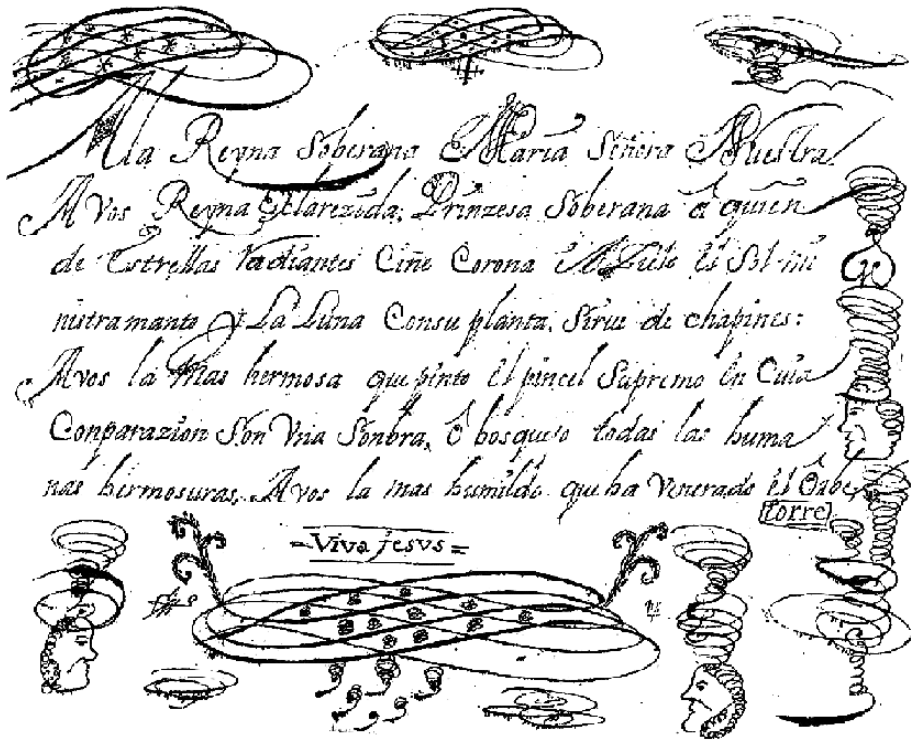 A la Reyna Soberana Maria Señora Nuestra
A Vos Reyna Esclarezida, Prinzesa Soberana â quien
de Estrellas Radiantes Ciñe Corona el Zielo el Sol mi
nistra manto y La Luna Consu planta, Sirve de chapines:
A vos la mas hermosa que pinto el pincel Supremo en Cuia
Conparazion Son Vna Sonbra, ô bosquejo todas las huma
nas hermosuras, A vos la mas humilde que ha Venerado el Orbe
torre
=Viva jesvs=